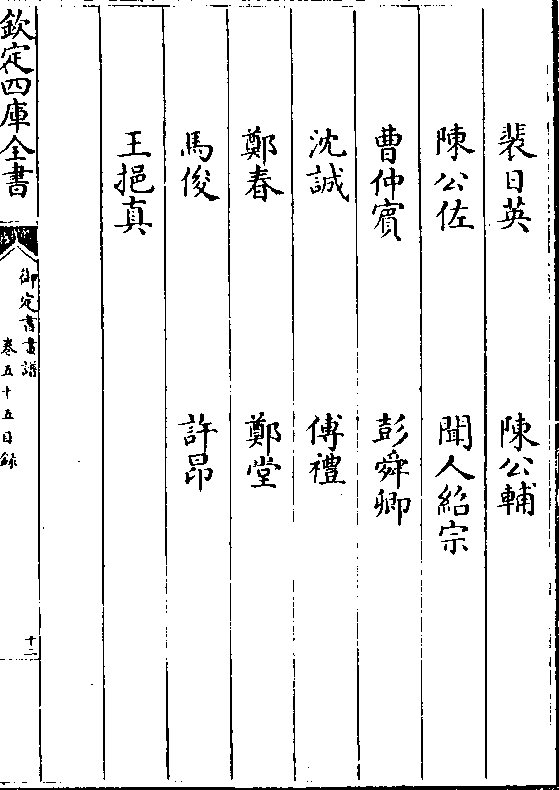 裴日英 陳公輔
陳公佐 聞人紹宗
曹仲賓 彭舜卿
沈誠 傅禮
鄭春 鄭堂
馬俊 許昂
王挹真
欽定四庫全書
御定書畫譜
卷五十五目録
十二